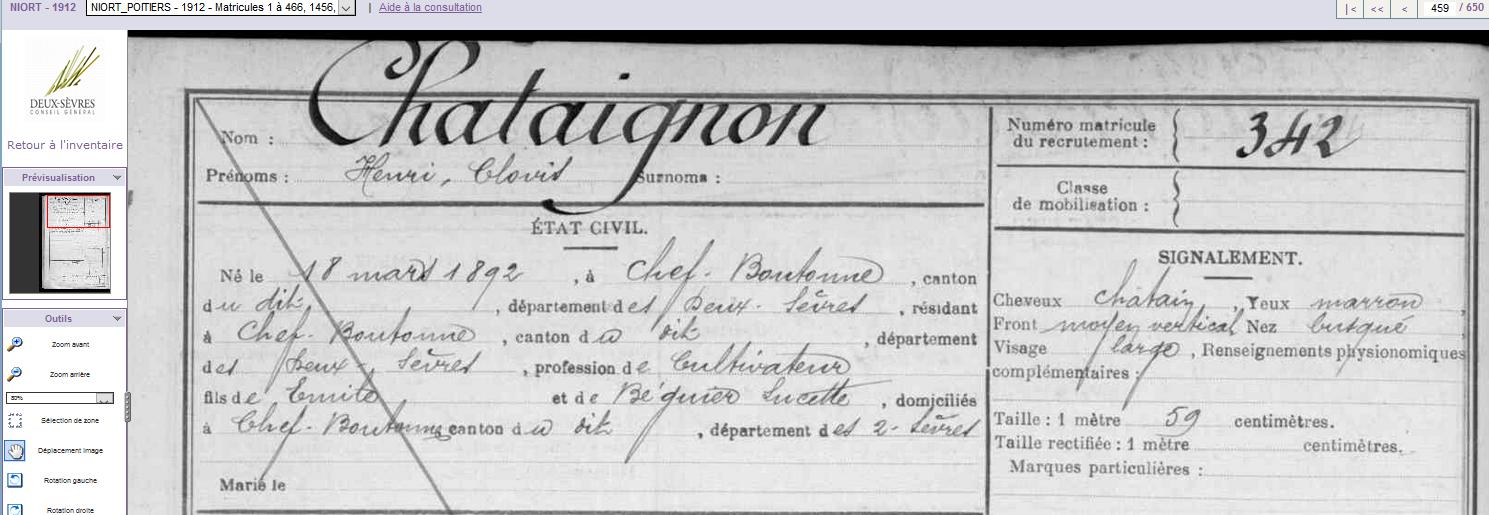 NIORT - 1912 NIORT_POITIERS - 1912 - Matricules 1 à 466, 1456, | Aide à la consultation |< << < 459 / 650
DEUX-SÈVRES
CONSEIL GÉNÉRAL
Retour à l'inventaire
Prévisualisation
Outils
Zoom avant
Zoom arrière
50%
Sélection de zone
Déplacement image
Rotation gauche
Rotation droite
Nom : Chataignon
Prénoms : Henri, Clovis Surnoms :
ÉTAT CIVIL.
Né le 18 mars 1892, à Chef-Boutonne, canton
du dit, département des Deux-Sèvres, résidant
à Chef-Boutonne, canton du dit, département
des Deux-Sèvres, profession de Cultivateur
fils de Emile et de Béguier Lucette, domiciliés
à Chef-Boutonne canton du dit, département des 2-Sèvres
Marié le
Numéro matricule
du recrutement : 342
Classe
de mobilisation :
SIGNALEMENT.
Cheveux châtain, Yeux marron
Front moyen vertical Nez busqué
Visage large, Renseignements physionomiques
complémentaires :
Taille : 1 mètre 59 centimètres.
Taille rectifiée : 1 mètre centimètres.
Marques particulières :